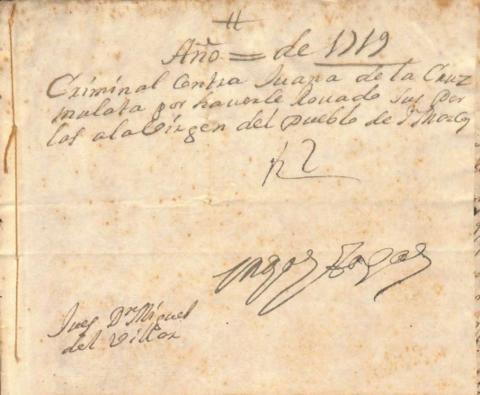 Año = de 1719
Criminal Contra Juana de la Cruz
mulata por haverle Rovado sus Per
las a la Virgen del Pueblo de S. Marcos
Juez Dn Miguel
del Villar